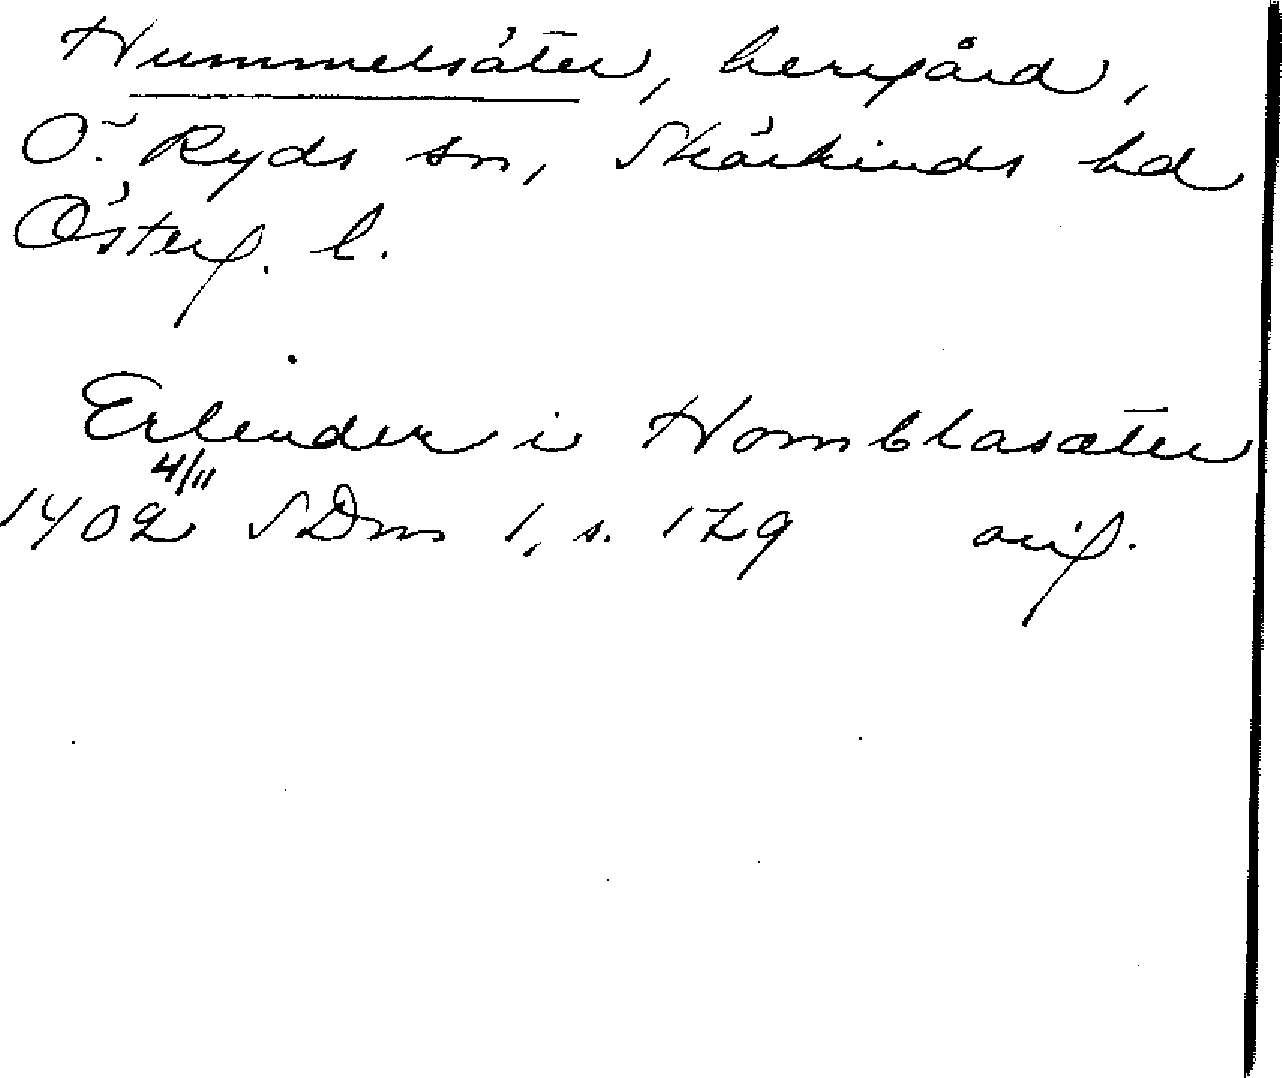 Hummelsäter, herrgård,
Ö. Ryds sn, Skärkinds hd
Österg. l.
Erlender i Homblasæter
4/11
1402 SDns 1, s. 129 orig.